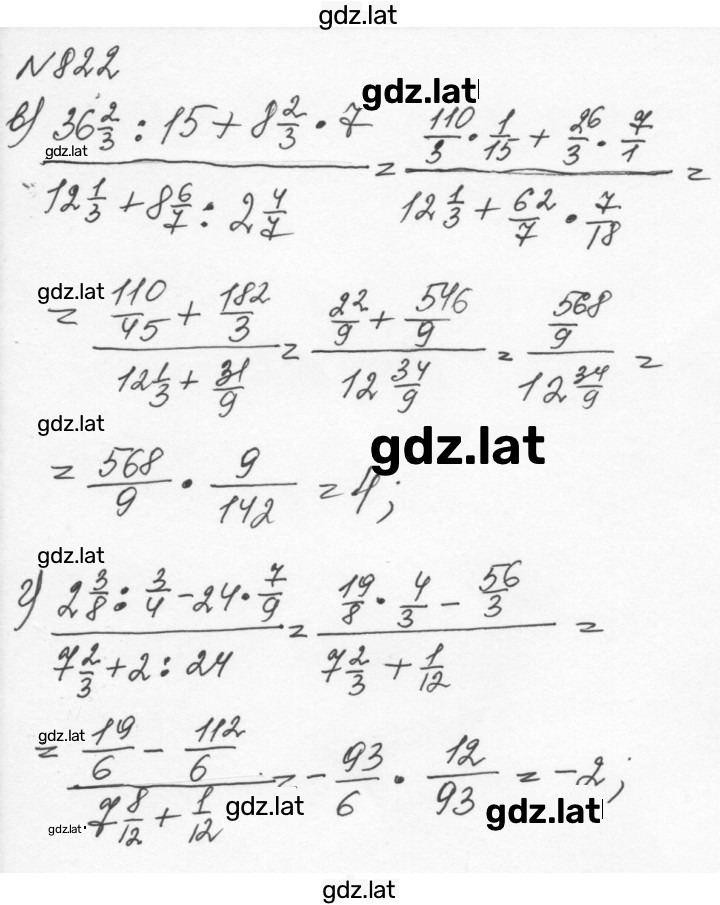 gdz.lat
N 822
gdz.lat
в) (36 2/3 : 15 + 8 2/3 · 7) / (12 1/3 + 8 6/7 : 2 4/7) = (110/3 · 1/15 + 26/3 · 7/1) / (12 1/3 + 62/7 · 7/18) =
gdz.lat
gdz.lat
= (110/45 + 182/3) / (12 1/3 + 31/9) = (22/9 + 546/9) / (12 34/9) = (568/9) / (12 34/9) =
gdz.lat
gdz.lat
= 568/9 · 9/142 = 4;
gdz.lat
г) (2 3/8 : 3/4 - 24 · 7/9) / (7 2/3 + 2 : 24) = (19/8 · 4/3 - 56/3) / (7 2/3 + 1/12) =
gdz.lat
= (19/6 - 112/6) / (7 8/12 + 1/12) = - 93/6 · 12/93 = -2;
gdz.lat
gdz.lat
gdz.lat
gdz.lat